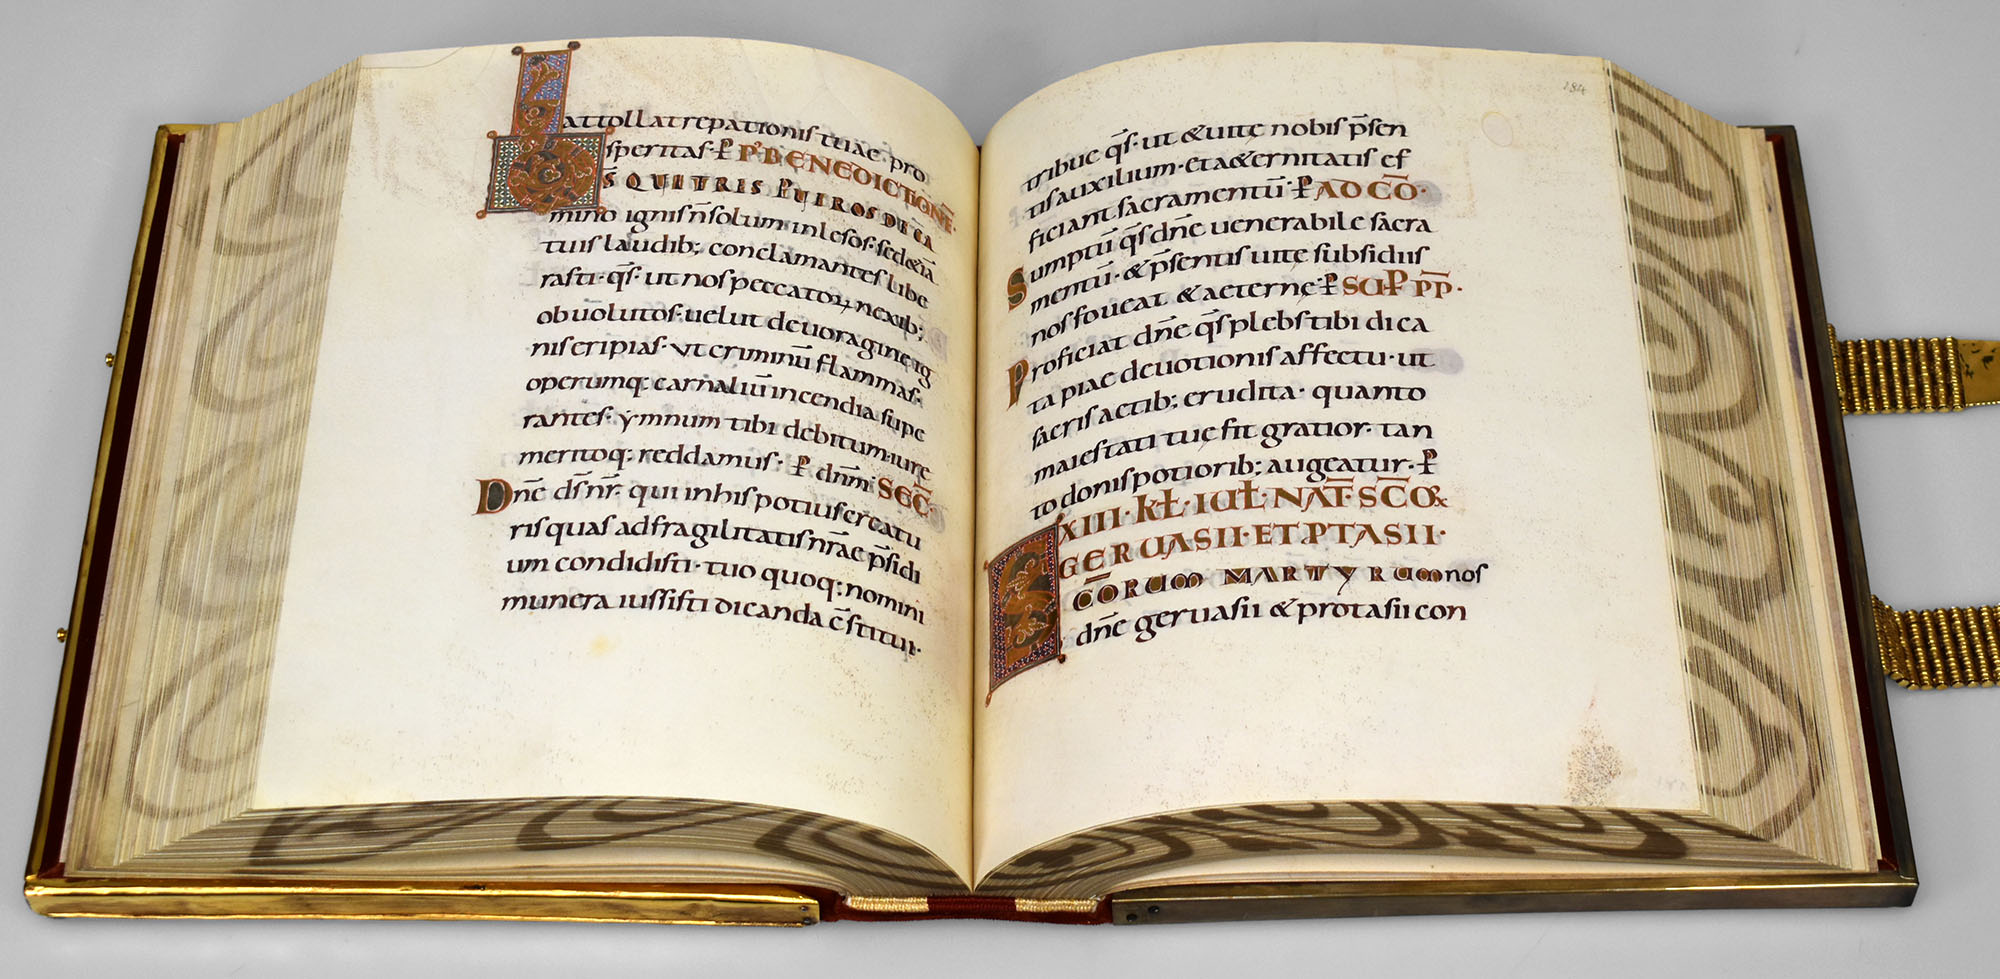 attollat repationis tuae · pro
speritas · ꝑ Pˢ BENEDICTIONĒ·
S QUI TRIS PUEROS DE CA
mino ignis n̄ solum inlesos · sed & iā
tuis laudib; conclamantes libe
rasti · q̄s · ut nos peccatoꝝ nexib;
obvolutos · uelut de uoragine ig
nis eripias · ut criminū flammas·
operumq; carnaliū incendia supe
rantes · ymnum tibi debitum · iure
meritoq; reddamus · ꝑ dn̄m SEC̄·
Dn̄e ds̄ nr̄ · qui in his potius creatu
ris quas ad fragilitatis nr̄ae p̄sidi
um condidisti · tuo quoq; nomini
munera iussisti dicanda c̄stitui·
184
tribue q̄s · ut & uitę nobis p̄sen
tis auxilium · et aeternitatis ef
ficiant sacramentū ꝑ AD CŌ·
Sumptū q̄s dn̄e uenerabile sacra
mentū · & p̄sentis uitę subsidiis
nos foueat & aeternę ꝑ SUꝑ P̄P̄·
Proficiat dn̄e q̄s plebs tibi dica
ta piae deuotionis affectu · ut
sacris actib; erudita · quanto
maiestati tuę fit gratior · tan
to donis potiorib; augeatur · ꝑ
XIII · KŁ · IUŁ · NAT̄ · SC̄OR
GERUASII · ET PTASII·
SC̄ORUM MARTYRUM nos
dn̄e geruasii & protasii con